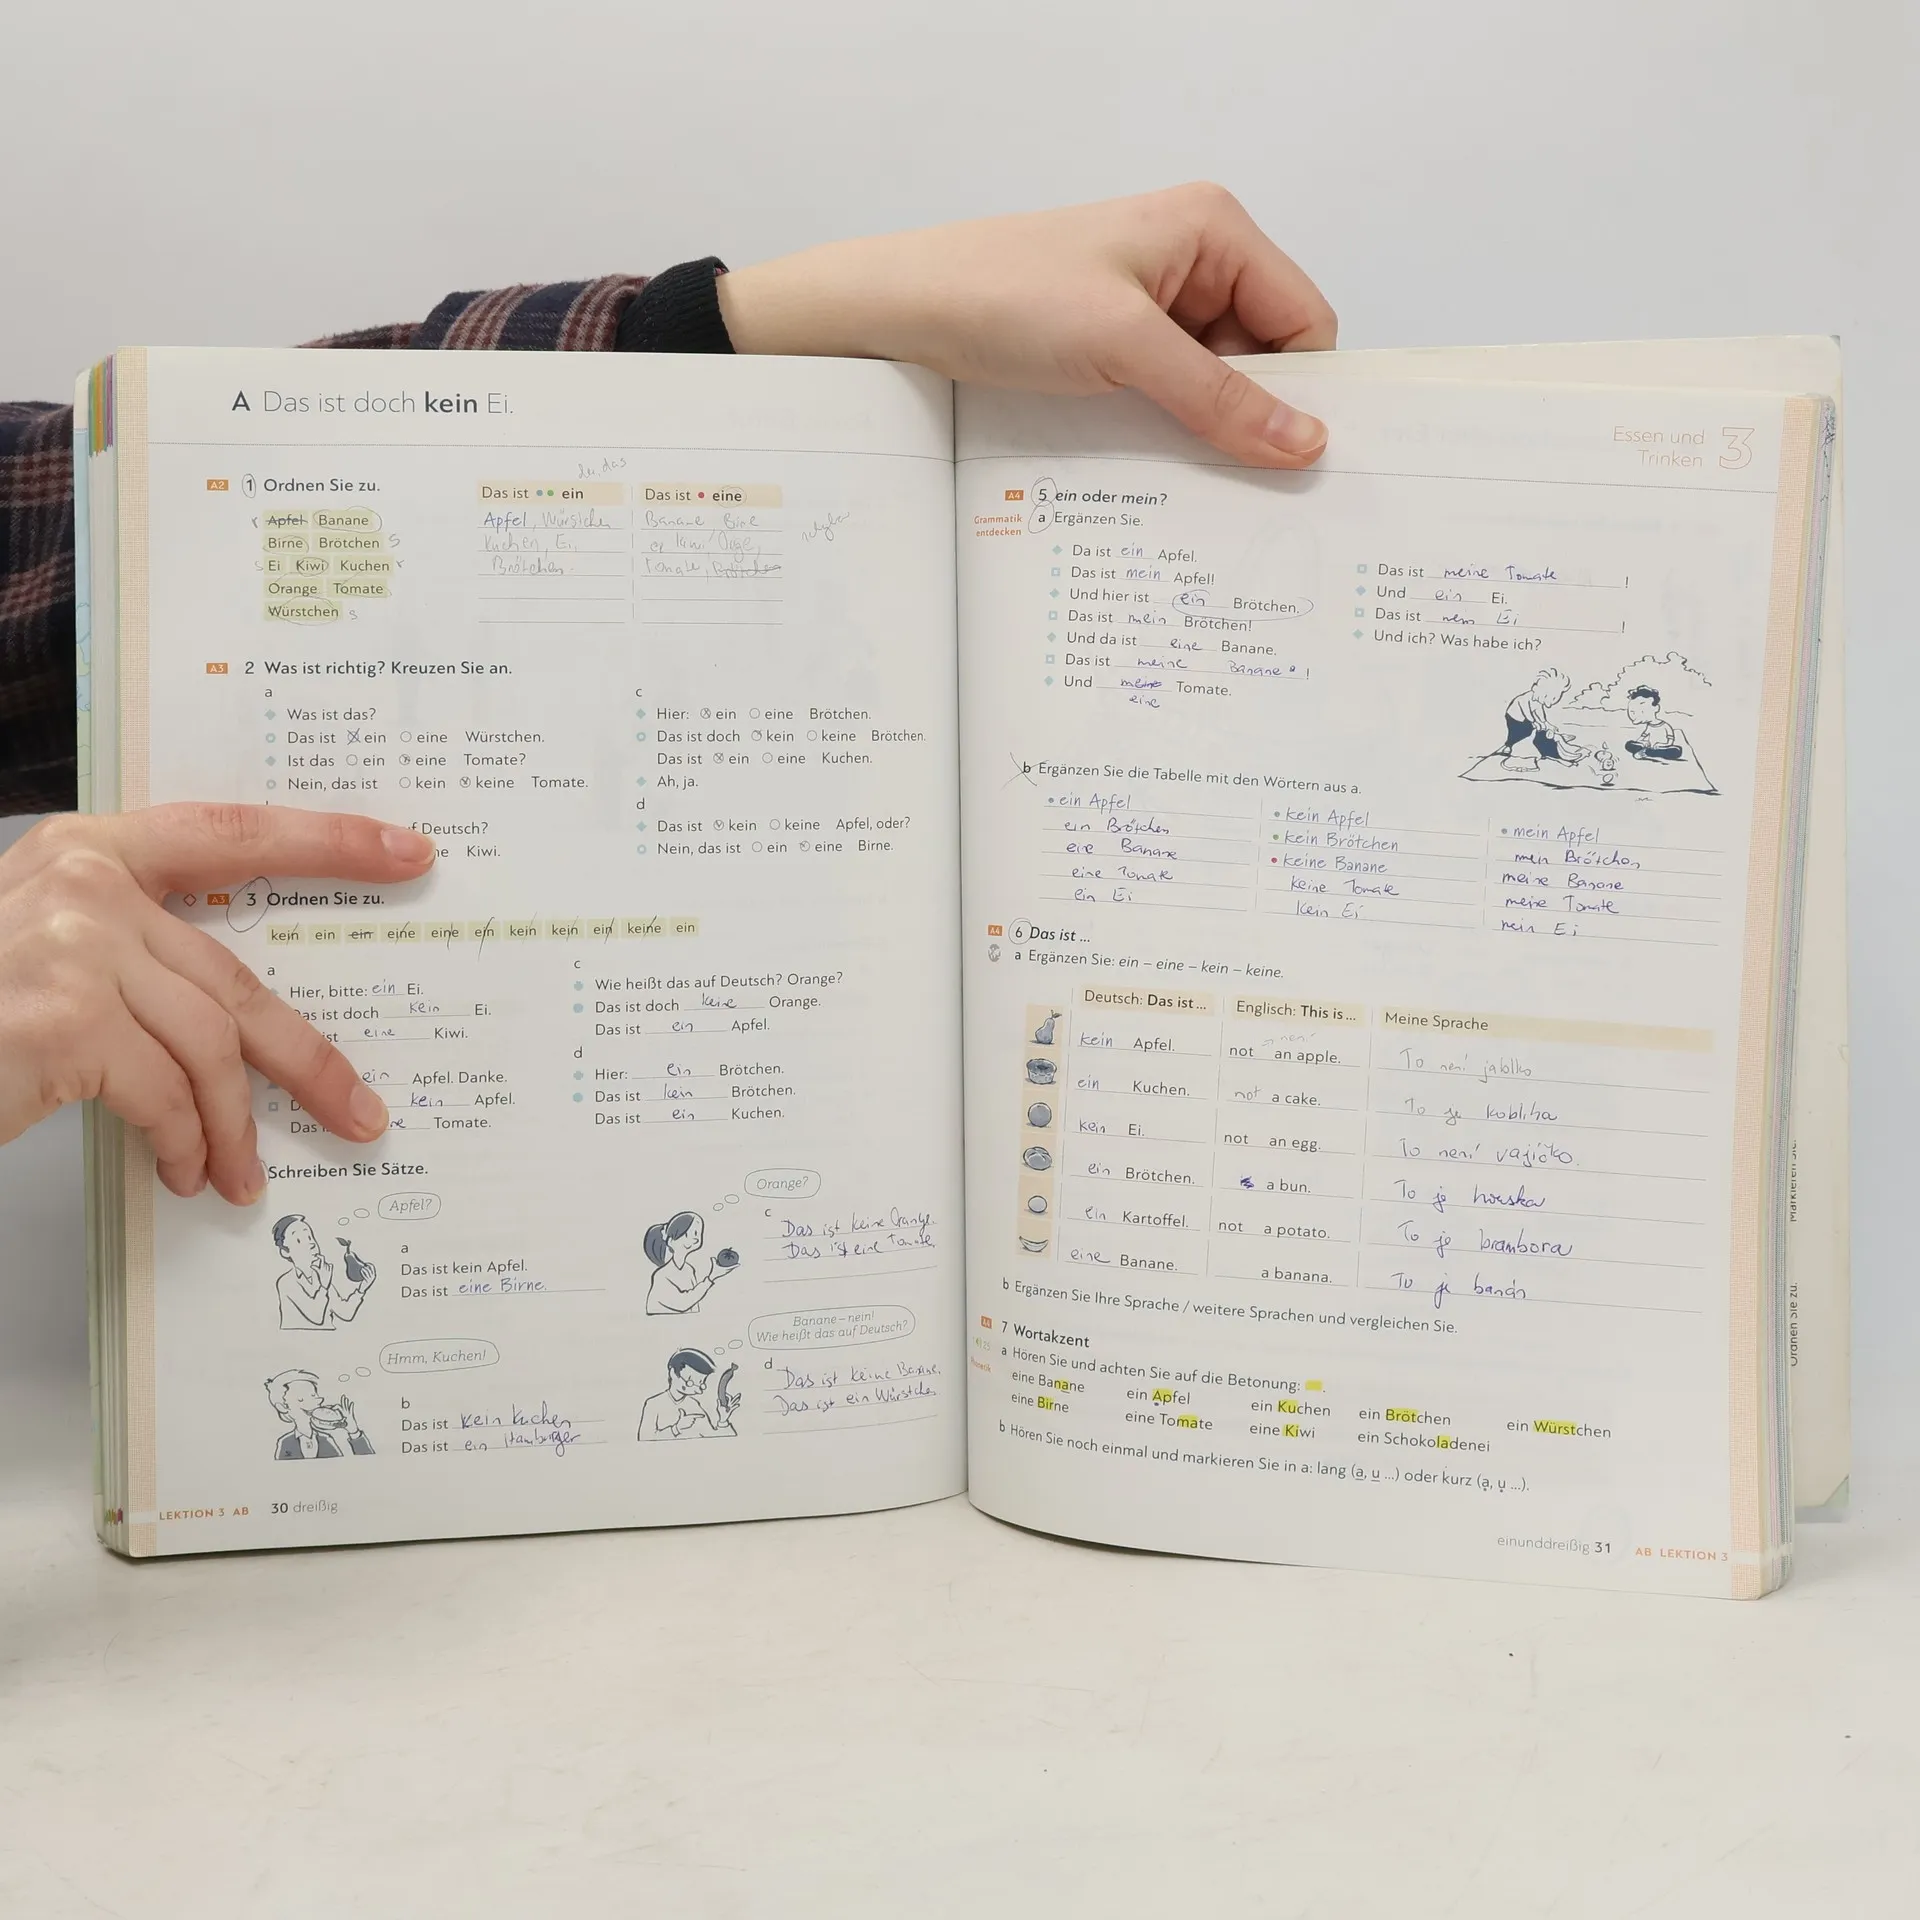 A Das ist doch kein Ei.
A2 1 Ordnen Sie zu.
Apfel Banane
Birne Brötchen s
s Ei Kiwi Kuchen r
Orange Tomate
Würstchen s
Das ist ein
Das ist eine
Apfel, Würstchen
Kuchen, Ei,
Brötchen.
Banane
Tomate, Brötchen
A3 2 Was ist richtig? Kreuzen Sie an.
a
Was ist das?
Das ist ein eine Würstchen.
Ist das ein eine Tomate?
Nein, das ist kein keine Tomate.
f Deutsch?
ne Kiwi.
c
Hier: ein eine Brötchen.
Das ist doch kein keine Brötchen.
Das ist ein eine Kuchen.
Ah, ja.
d
Das ist kein keine Apfel, oder?
Nein, das ist ein eine Birne.
A3 3 Ordnen Sie zu.
kein ein ein eine eine ein kein kein ein keine ein
a
Hier, bitte: ein Ei.
as ist doch kein Ei.
ist eine Kiwi.
ein Apfel. Danke.
D kein Apfel.
Das i ne Tomate.
c
Wie heißt das auf Deutsch? Orange?
Das ist doch keine Orange.
Das ist ein Apfel.
d
Hier: ein Brötchen.
Das ist kein Brötchen.
Das ist ein Kuchen.
Schreiben Sie Sätze.
Apfel?
a
Das ist kein Apfel.
Das ist eine Birne.
Hmm, Kuchen!
b
Das ist kein Kuchen
Das ist ein Hamburger
Orange?
c
Das ist keine Orange.
Das ist eine Tomate.
Banane – nein!
Wie heißt das auf Deutsch?
d
Das ist keine Banane.
Das ist ein Würstchen
LEKTION 3 AB 30 dreißig
Essen und
Trinken 3
A4 5 ein oder mein?
Grammatik
entdecken
a Ergänzen Sie.
Da ist ein Apfel.
Das ist mein Apfel!
Und hier ist ein Brötchen.
Das ist mein Brötchen!
Und da ist eine Banane.
Das ist meine Banane!
Und meine Tomate.
eine
Das ist meine Tomate!
Und ein Ei.
Das ist mein Ei!
Und ich? Was habe ich?
b Ergänzen Sie die Tabelle mit den Wörtern aus a.
ein Apfel
ein Brötchen
eine Banane
eine Tomate
ein Ei
kein Apfel
kein Brötchen
keine Banane
keine Tomate
kein Ei
mein Apfel
mein Brötchen
meine Banane
meine Tomate
mein Ei
A4 6 Das ist ...
a Ergänzen Sie: ein – eine – kein – keine.
Deutsch: Das ist ... Englisch: This is ... Meine Sprache
kein Apfel. not an apple. To není jablko
ein Kuchen. not a cake. To je kobliha
kein Ei. not an egg. To není vajíčko.
ein Brötchen. a bun. To je houska
ein Kartoffel. not a potato. To je brambora
eine Banane. a banana. To je banán
b Ergänzen Sie Ihre Sprache / weitere Sprachen und vergleichen Sie.
7 Wortakzent
a Hören Sie und achten Sie auf die Betonung:
eine Banane ein Apfel ein Kuchen ein Brötchen ein Würstchen
eine Birne eine Tomate eine Kiwi ein Schokoladenei
b Hören Sie noch einmal und markieren Sie in a: lang (a, u ...) oder kurz (ạ, ụ ...).
einunddreißig 31 AB LEKTION 3
Markieren Sie.
Ordnen Sie zu.